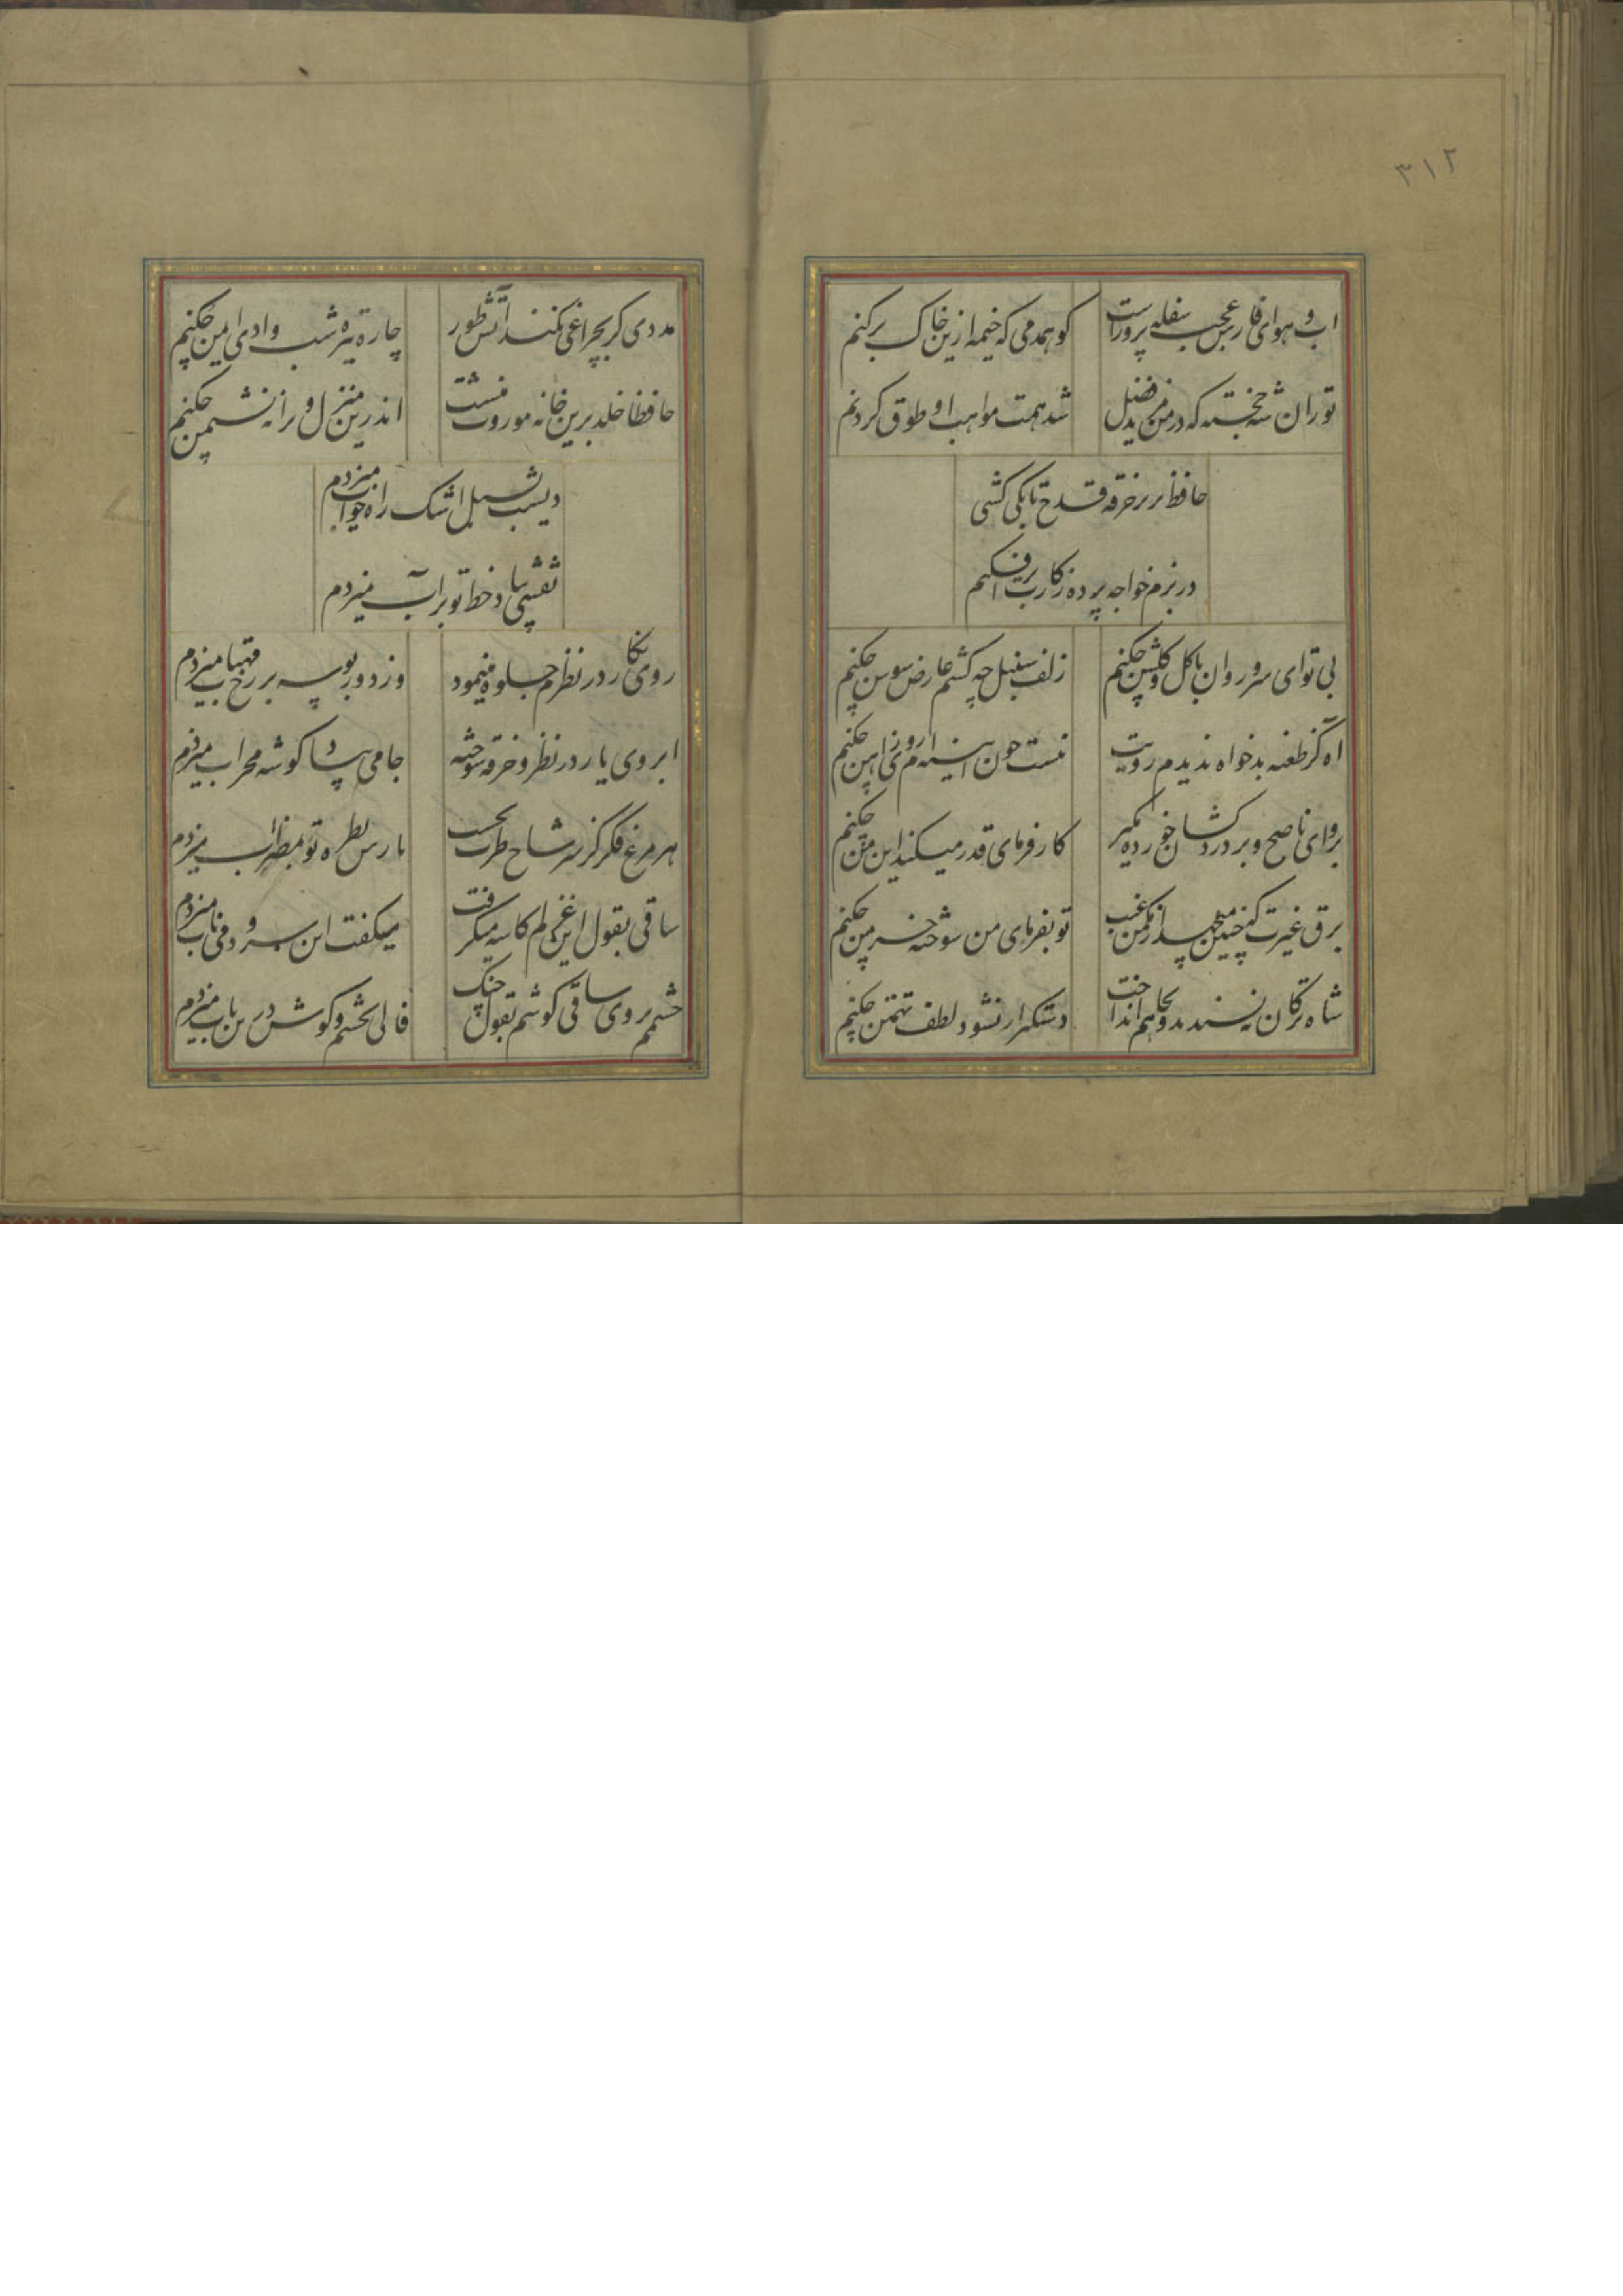 ۳۱۲
اب و هوای فارس عجب سفله پرورست کو همدمی که خیمه ازین خاک برکنم
توران شه خجسته که در من یزید فضل شد همت مواهب او طوق کردنم
حافظ بزیر خرقه قدح تا بکی کشی
در بزم خواجه پرده ز کارت برافکنم
بی تو ای سرو روان با کل و کلشن چکنم زلف سنبل چه کشم عارض سوسن چکنم
اه کز طعنه بدخواه ندیدم رویت نیست چون اینه ام روی ز اهن چکنم
برو ای ناصح و بر دردکشان خرده مکیر کارفرمای قدر میکند این من چکنم
برق غیرت که چنین میجهد از مکمن غیب تو بفرمای من سوخته خرمن چکنم
شاه ترکان نه پسندید و بچاهم انداخت دستکیر ار نشود لطف تهمتن چکنم
مددی کر بچراغی نکند آتش طور چاره تیره شب وادی ایمن چکنم
حافظا خلد برین خانه موروث منست اندرین منزل ویرانه نشیمن چکنم
دیشب بسیل اشک راه خواب میزدم
نقشی بیاد خط تو بر آب میزدم
روی نکار در نظرم جلوه مینمود وز دور بوسه بر رخ مهتاب میزدم
ابروی یار در نظر و خرقه سوخته جامی بیاد کوشه محراب میزدم
هر مرغ فکر کز سر شاخ طرب بجست بازش بطره تو بمضراب میزدم
ساقی بقول این غزلم کاسه میکرفت میکفت این سرود و می ناب میزدم
چشمم بروی ساقی کوشم بقول چنک فالی بچشم و کوش درین باب میزدم